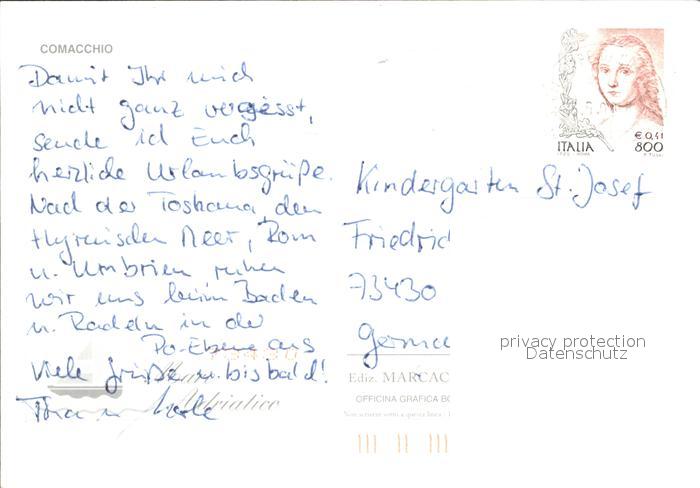 COMACCHIO
Damit Ihr mich
nicht ganz vergesst,
sende ich Euch
herzliche Urlaubsgrüße.
Nach der Toskana, dem
thyrenischen Meer, Rom
u. Umbrien ruhen
wir uns beim Baden
u. Radeln in der
Po-Ebene aus
Viele Grüße u. bis bald!
ITALIA
€ 0,41
800
Kindergarten St. Josef
Friedric
73430
Germa
privacy protection
Datenschutz
73430
Mare
Adriatico
Ediz. MARCAC
OFFICINA GRAFICA BO
Non scrivere sotto a questa linea